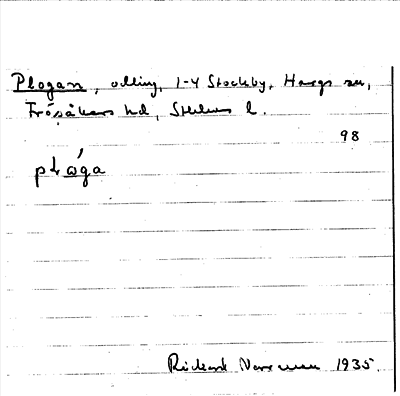 Plogan, odling, 1-4 Stockby, Hargs sn,
Frösåkers hd, Sthlms l.
98
plώ̲ga
Rickard 1935.